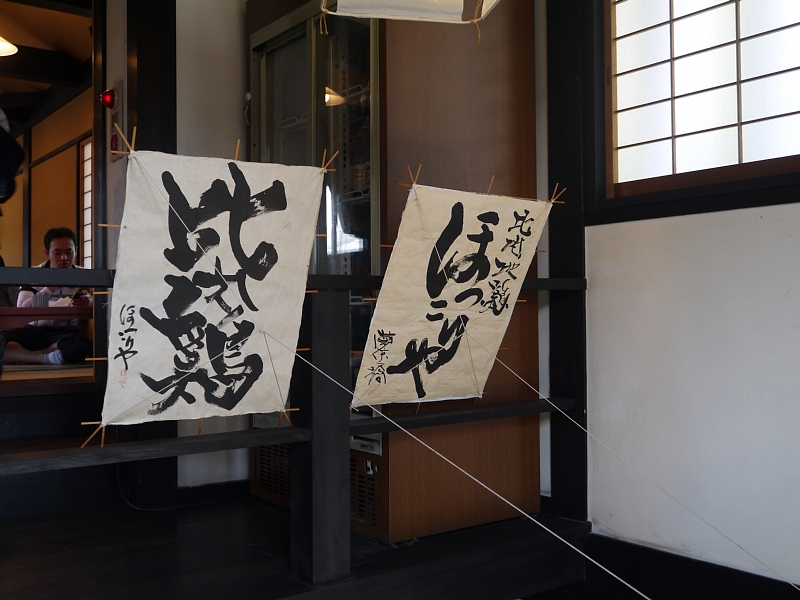 比内鶏
ほっこりや
比内地鶏
ほっこりや